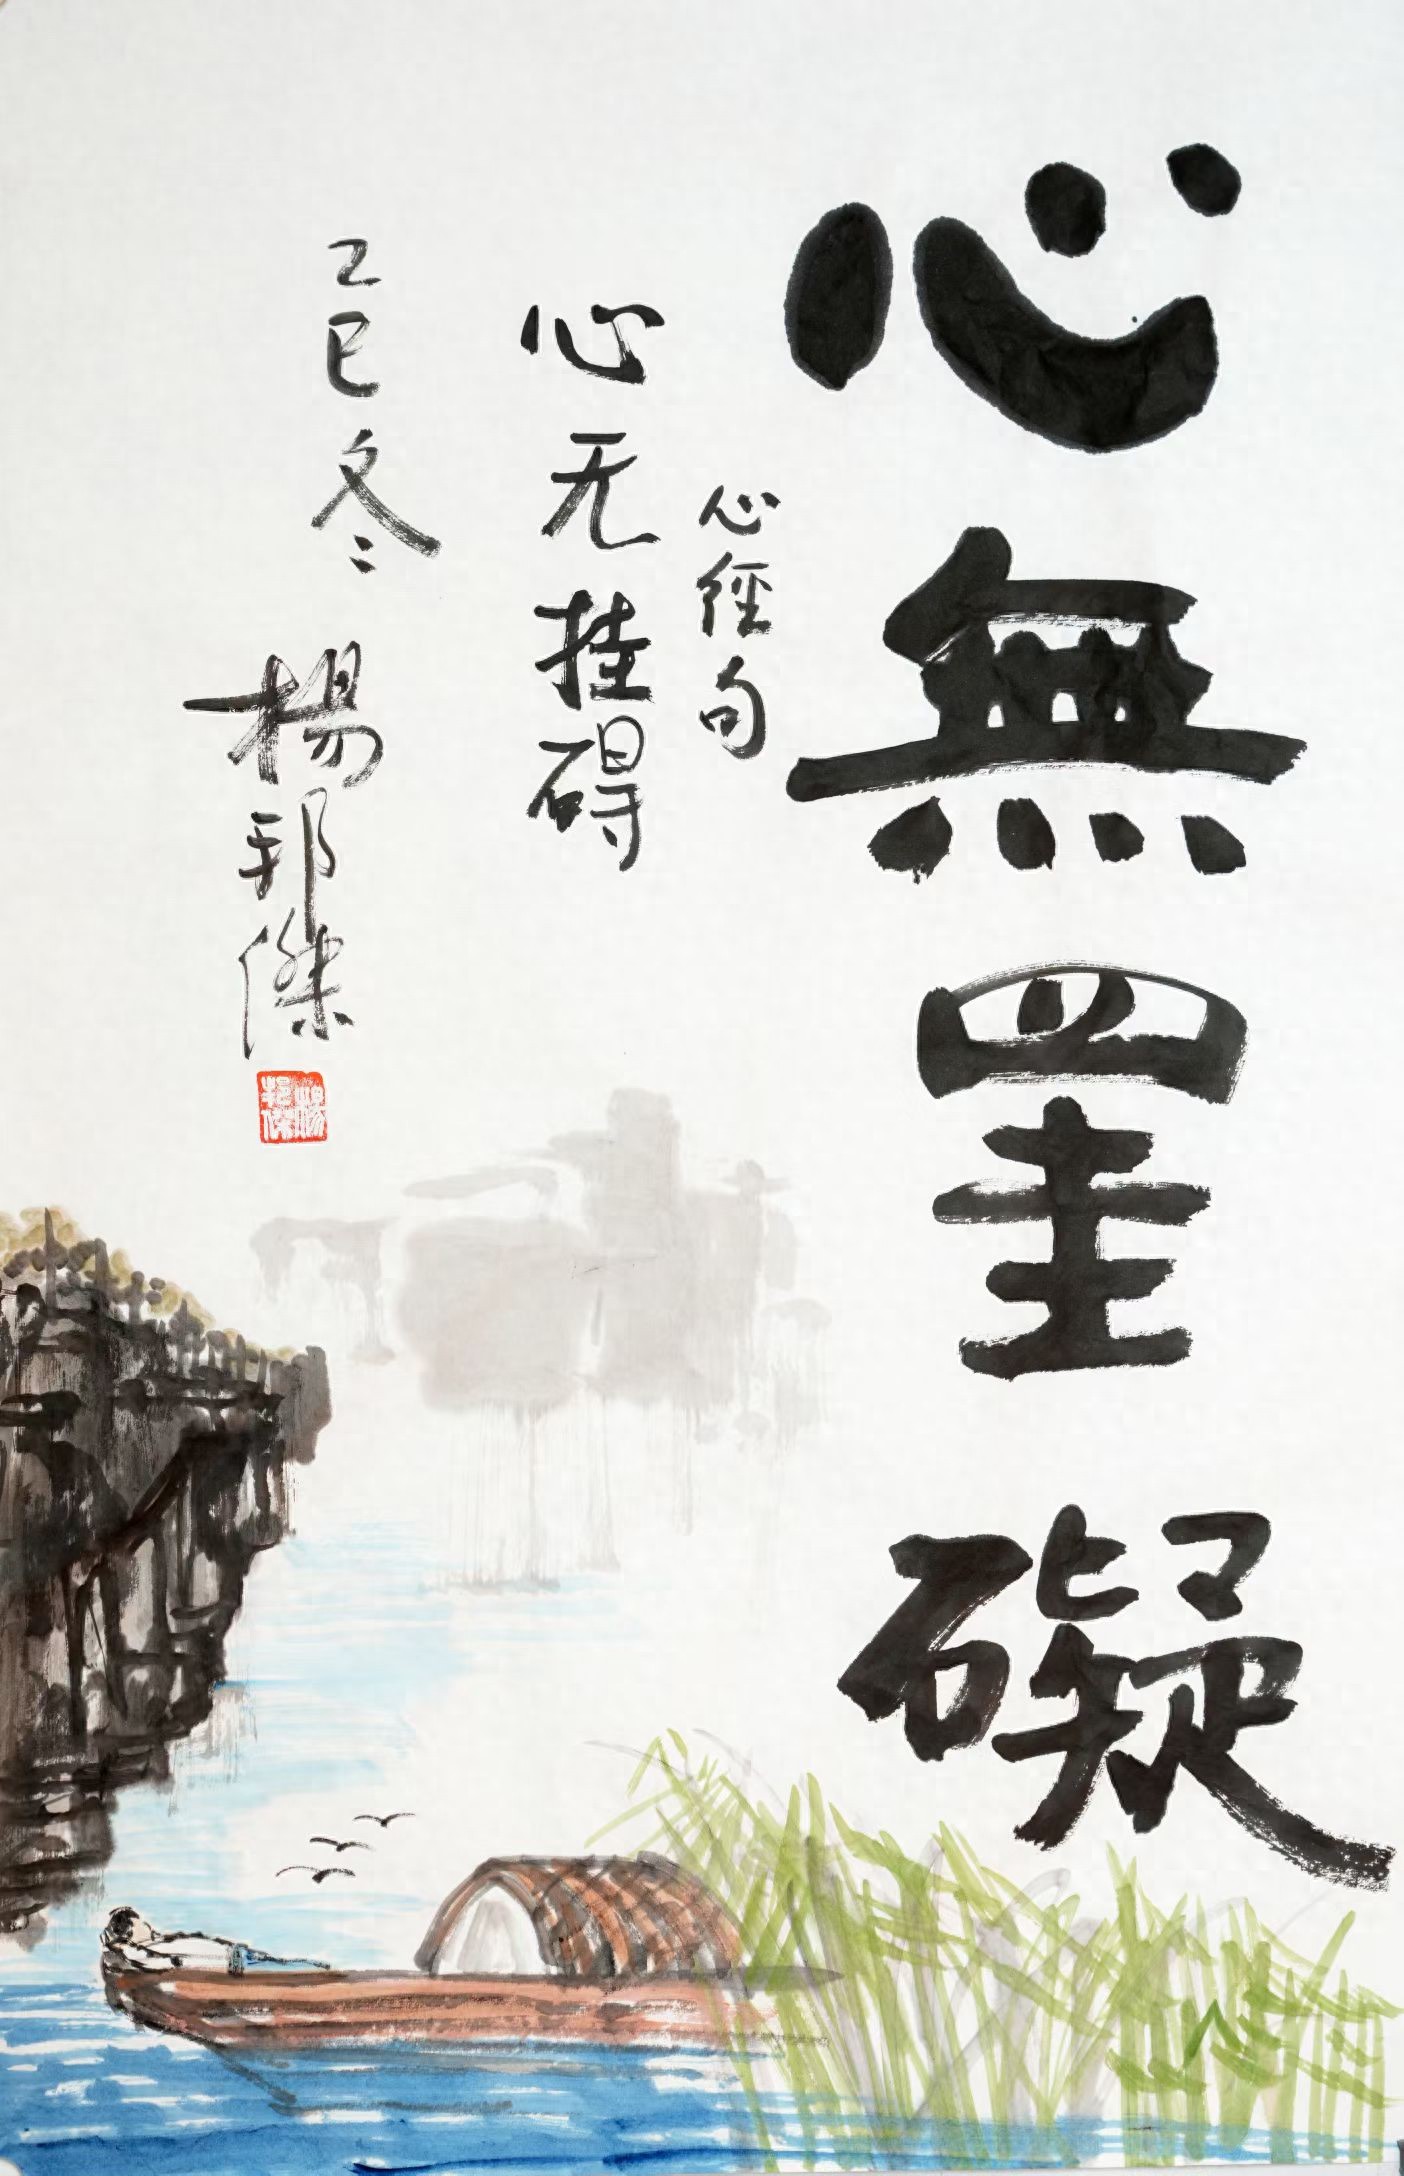 心無罣礙
心經句
心无挂碍
乙巳冬
楊邦傑